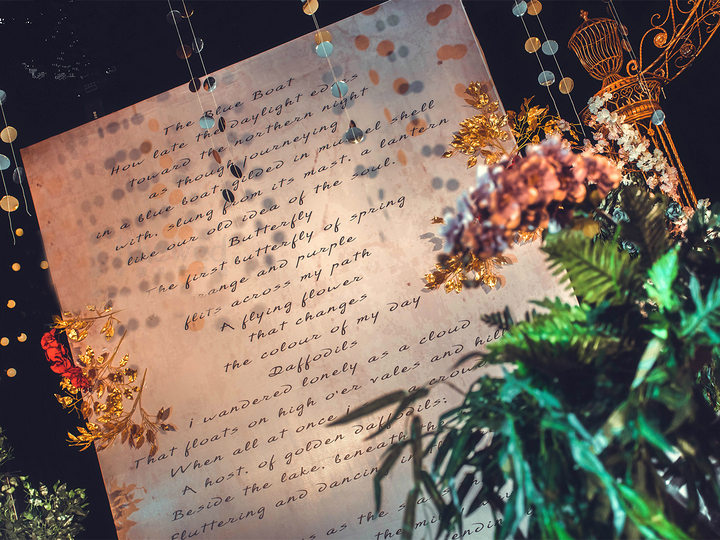 The Blue Boat
How late the daylight edges
toward the northern night
as though journeying
in a blue boat, gilded in mussel shell
with, slung from its mast, a lantern
like our old idea of the soul.
Butterfly
The first butterfly of spring
ange and purple
flits across my path
A flying flower
that changes
the colour of my day
Daffodils
i wandered lonely as a cloud
That floats on high o'er vales and hill
When all at once i a crow
A host, of golden daffodils;
Beside the lake, beneath the
Fluttering and dancing in th
as the stars
the milky way
endin